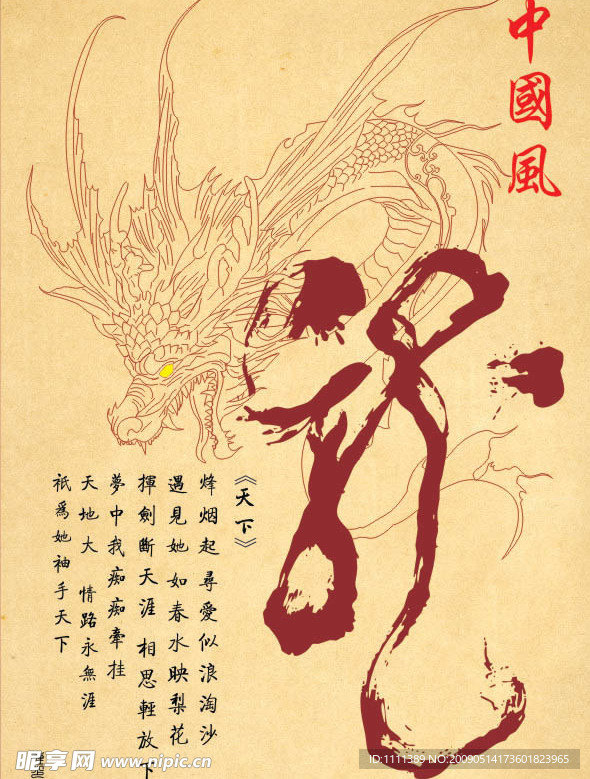 中國風
龍
《天下》
烽烟起 尋愛似浪淘沙
遇見她 如春水映梨花
揮劍斷天涯 相思輕放下
夢中我痴痴牽挂
天地大 情路永無涯
衹爲她袖手天下
昵享网 www.nipic.cn
ID:1111389 NO.20090514173601823965